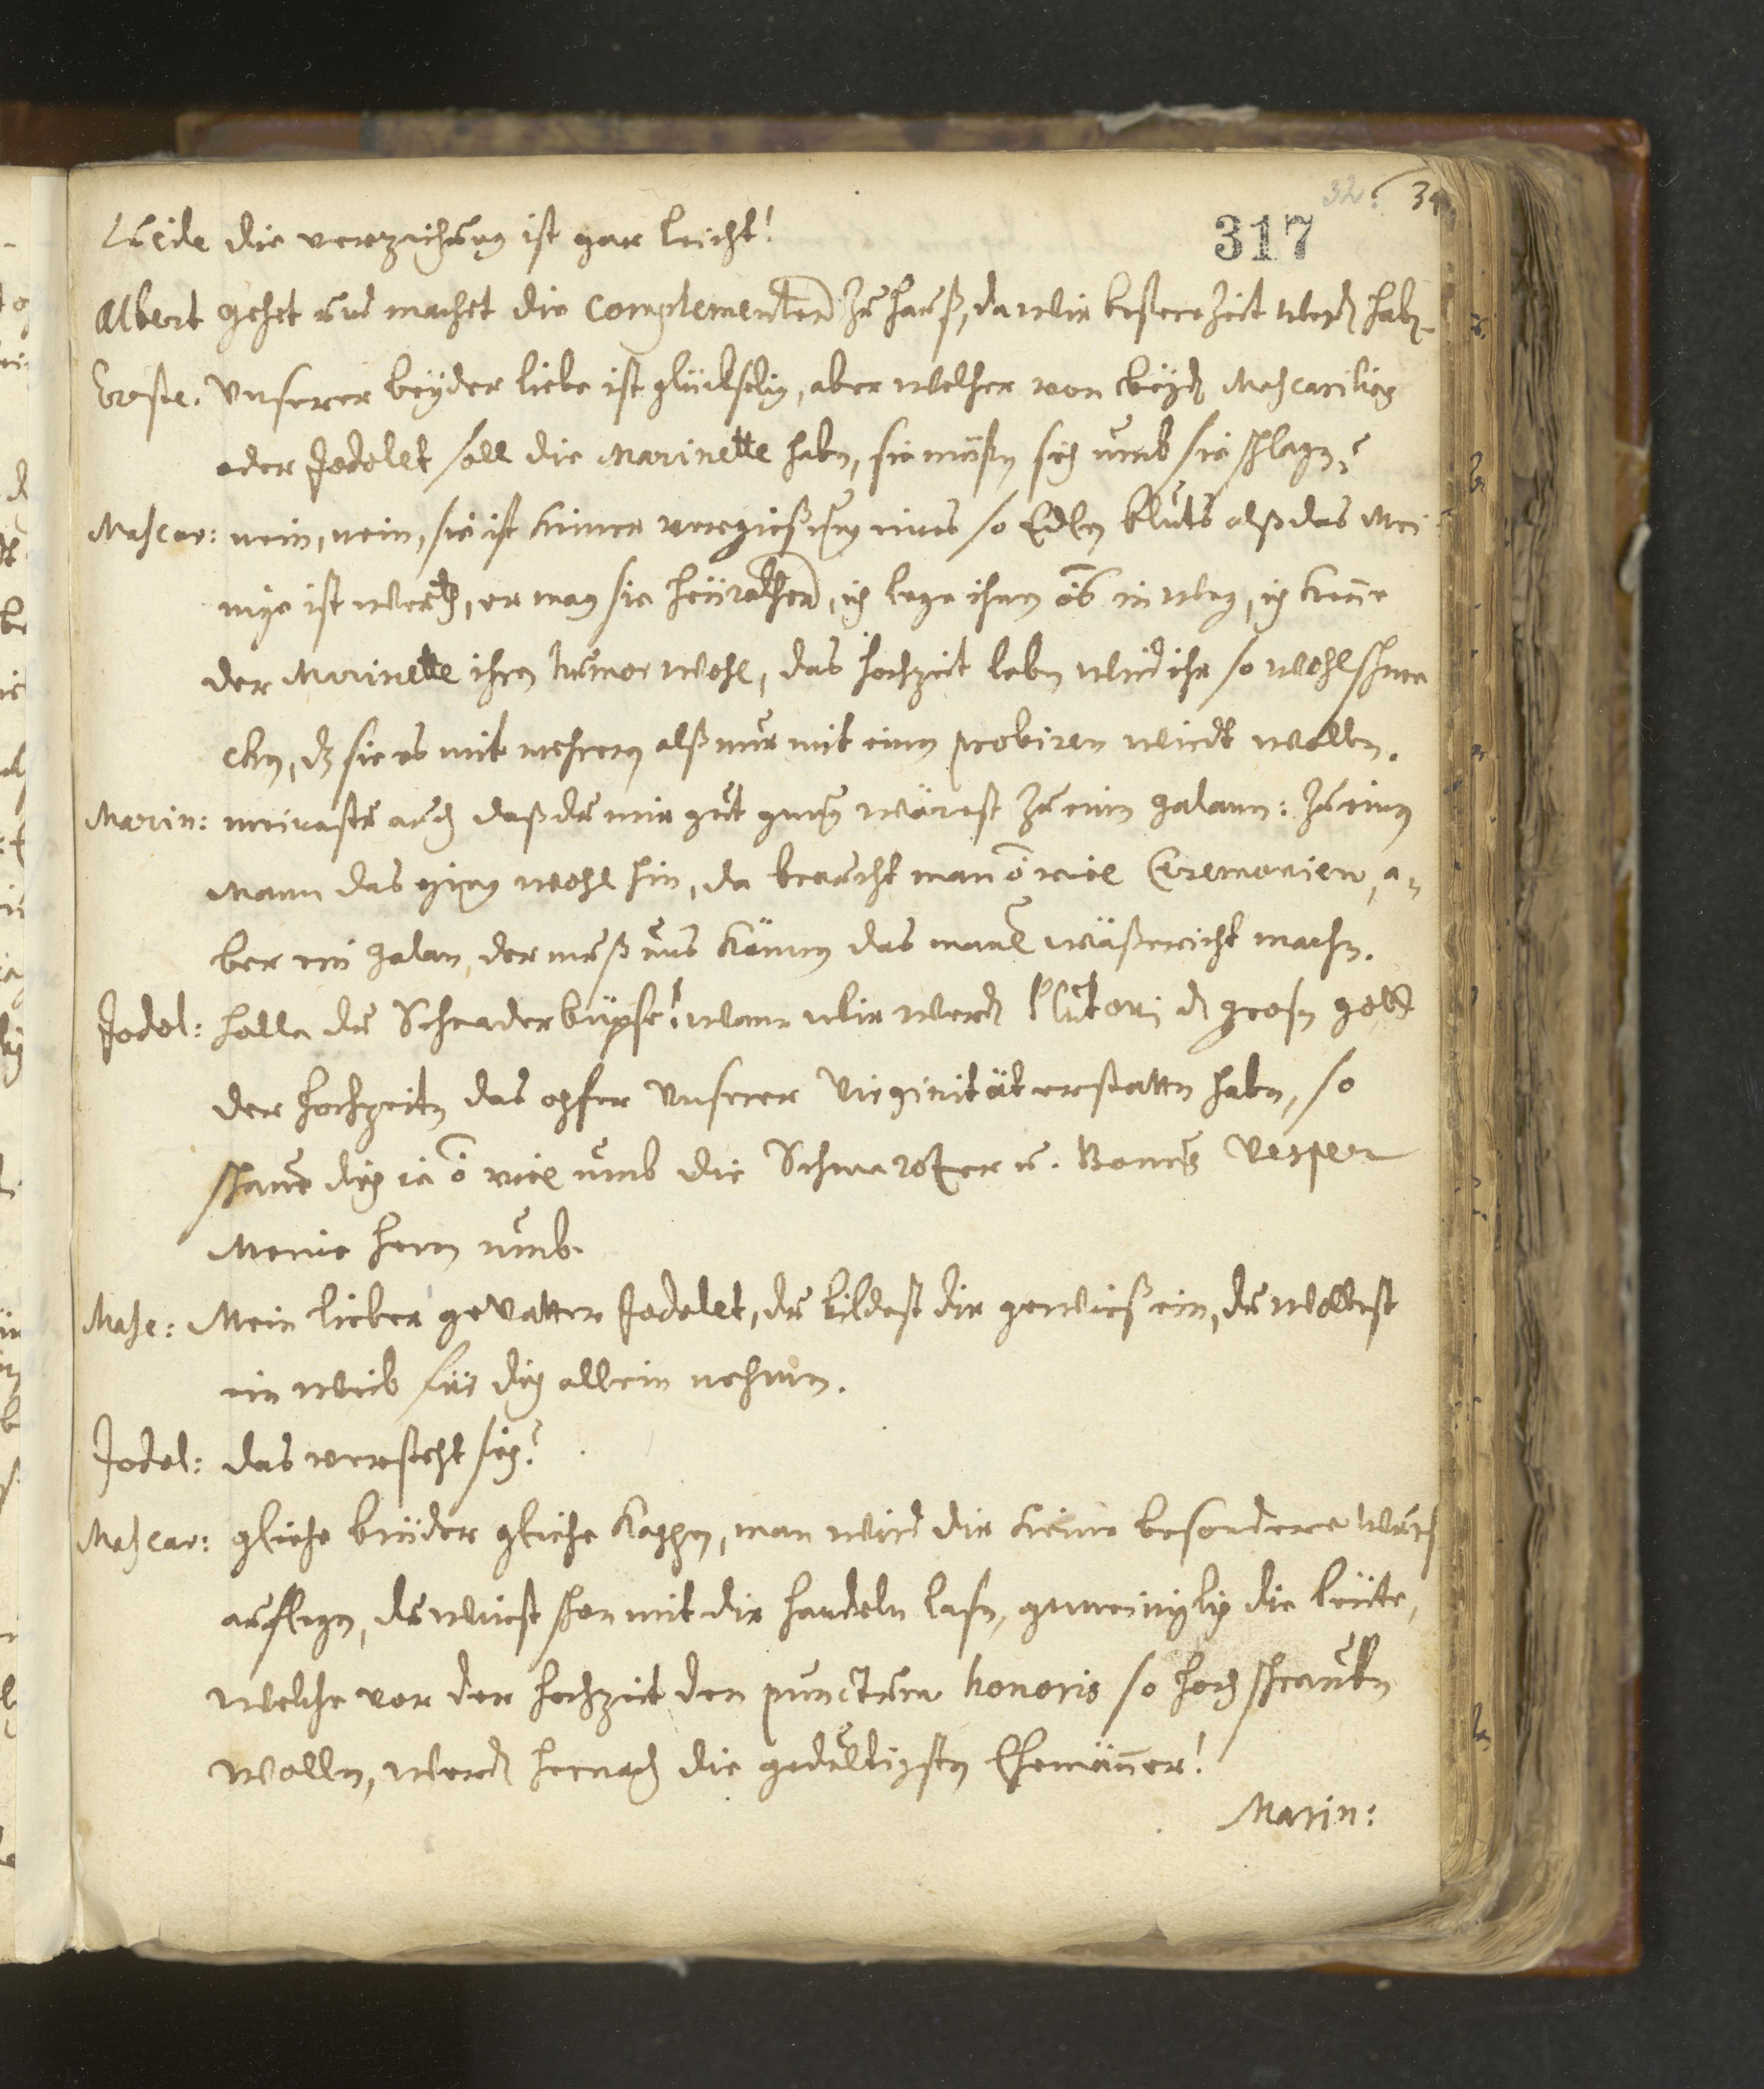 32. 34
317
Lucide die verzeihung ist gar leicht!
Albert gehet und machet die complementen zu hauß, da wir bessere zeit werden haben.
Eraste. Unserer beyder liebe ist glückselig, aber welcher von beyden Mascarilien
oder Jodelet soll die Marinette haben, sie müssen sich umb sie schlagen?
Mascar: nein, nein, sie ist keiner vergiessung eines so Edlen bluts alß das Mei
nige ist werth, er mag sie heürathen, ich lege ihm nichts in weg, ich kenne
der Marinette ihren humor wohl, das hochzeit leben wird ihr so wohl schme
cken, dz sie es mit mehrern alß nur mit einem probiren wirdt wollen.
Marin: meinestu auch daß du mir gut genug wärest zu eim galann: zu einem
Mann das ging wohl hin, da braucht man nicht viel Ceremonien, a-
ber ein galan, der muß uns können das maul wässericht machen.
Jodel: holla du Schnaderbüpse! wann wir werden Plutoni dem grosen gott
der hochzeiten das opfer Unserer Virginität erstatten haben, so
schaue dich ja nicht viel umb die Schmarotzer u. Bonus Vesper
Meine herrn umb.
Masc: Mein lieber geVatter Jodelet, du bildest dir gewieß ein, du wollest
ein weib für dich allein nehmen.
Jodel: das versteht sich?
Mascar: gleiche brüder gleiche kappen, man wird dir keine besondere
auflegen, du wirst schon mit dir handeln lasen, gemeiniglich die leüte,
welche vor der hochzeit den punctum honoris so hoch schrauben
wollen, werden hernach die gedültigsten Ehemänner!
Marin: